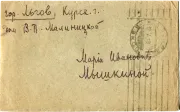 гор. Льгов, Курск. г.
В. В. Малиницкой
Марiи Ивановнѣ
Мышкиной